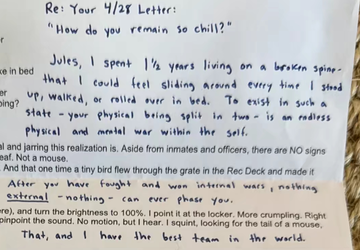 Re: Your 4/28 Letter:
"How do you remain so chill?"
Jules, I spent 1½ years living on a broken spine-
ke in bed
that I could feel sliding around every time I stood
er
up, walked, or rolled over in bed. To exist in such a
bing?
state - your physical being split in two - is an endless
physical and mental war within the self.
al and jarring this realization is. Aside from inmates and officers, there are NO signs
eaf. Not a mouse.
. And that one time a tiny bird flew through the grate in the Rec Deck and made it
After you have fought and won internal wars, nothing
external - nothing - can ever phase you.
ore), and turn the brightness to 100%. I point at the locker. More crumpling. Right
pinpoint the sound. No motion, but I hear. I squint, looking for the tail of a mouse,
That, and I have the best team in the world.